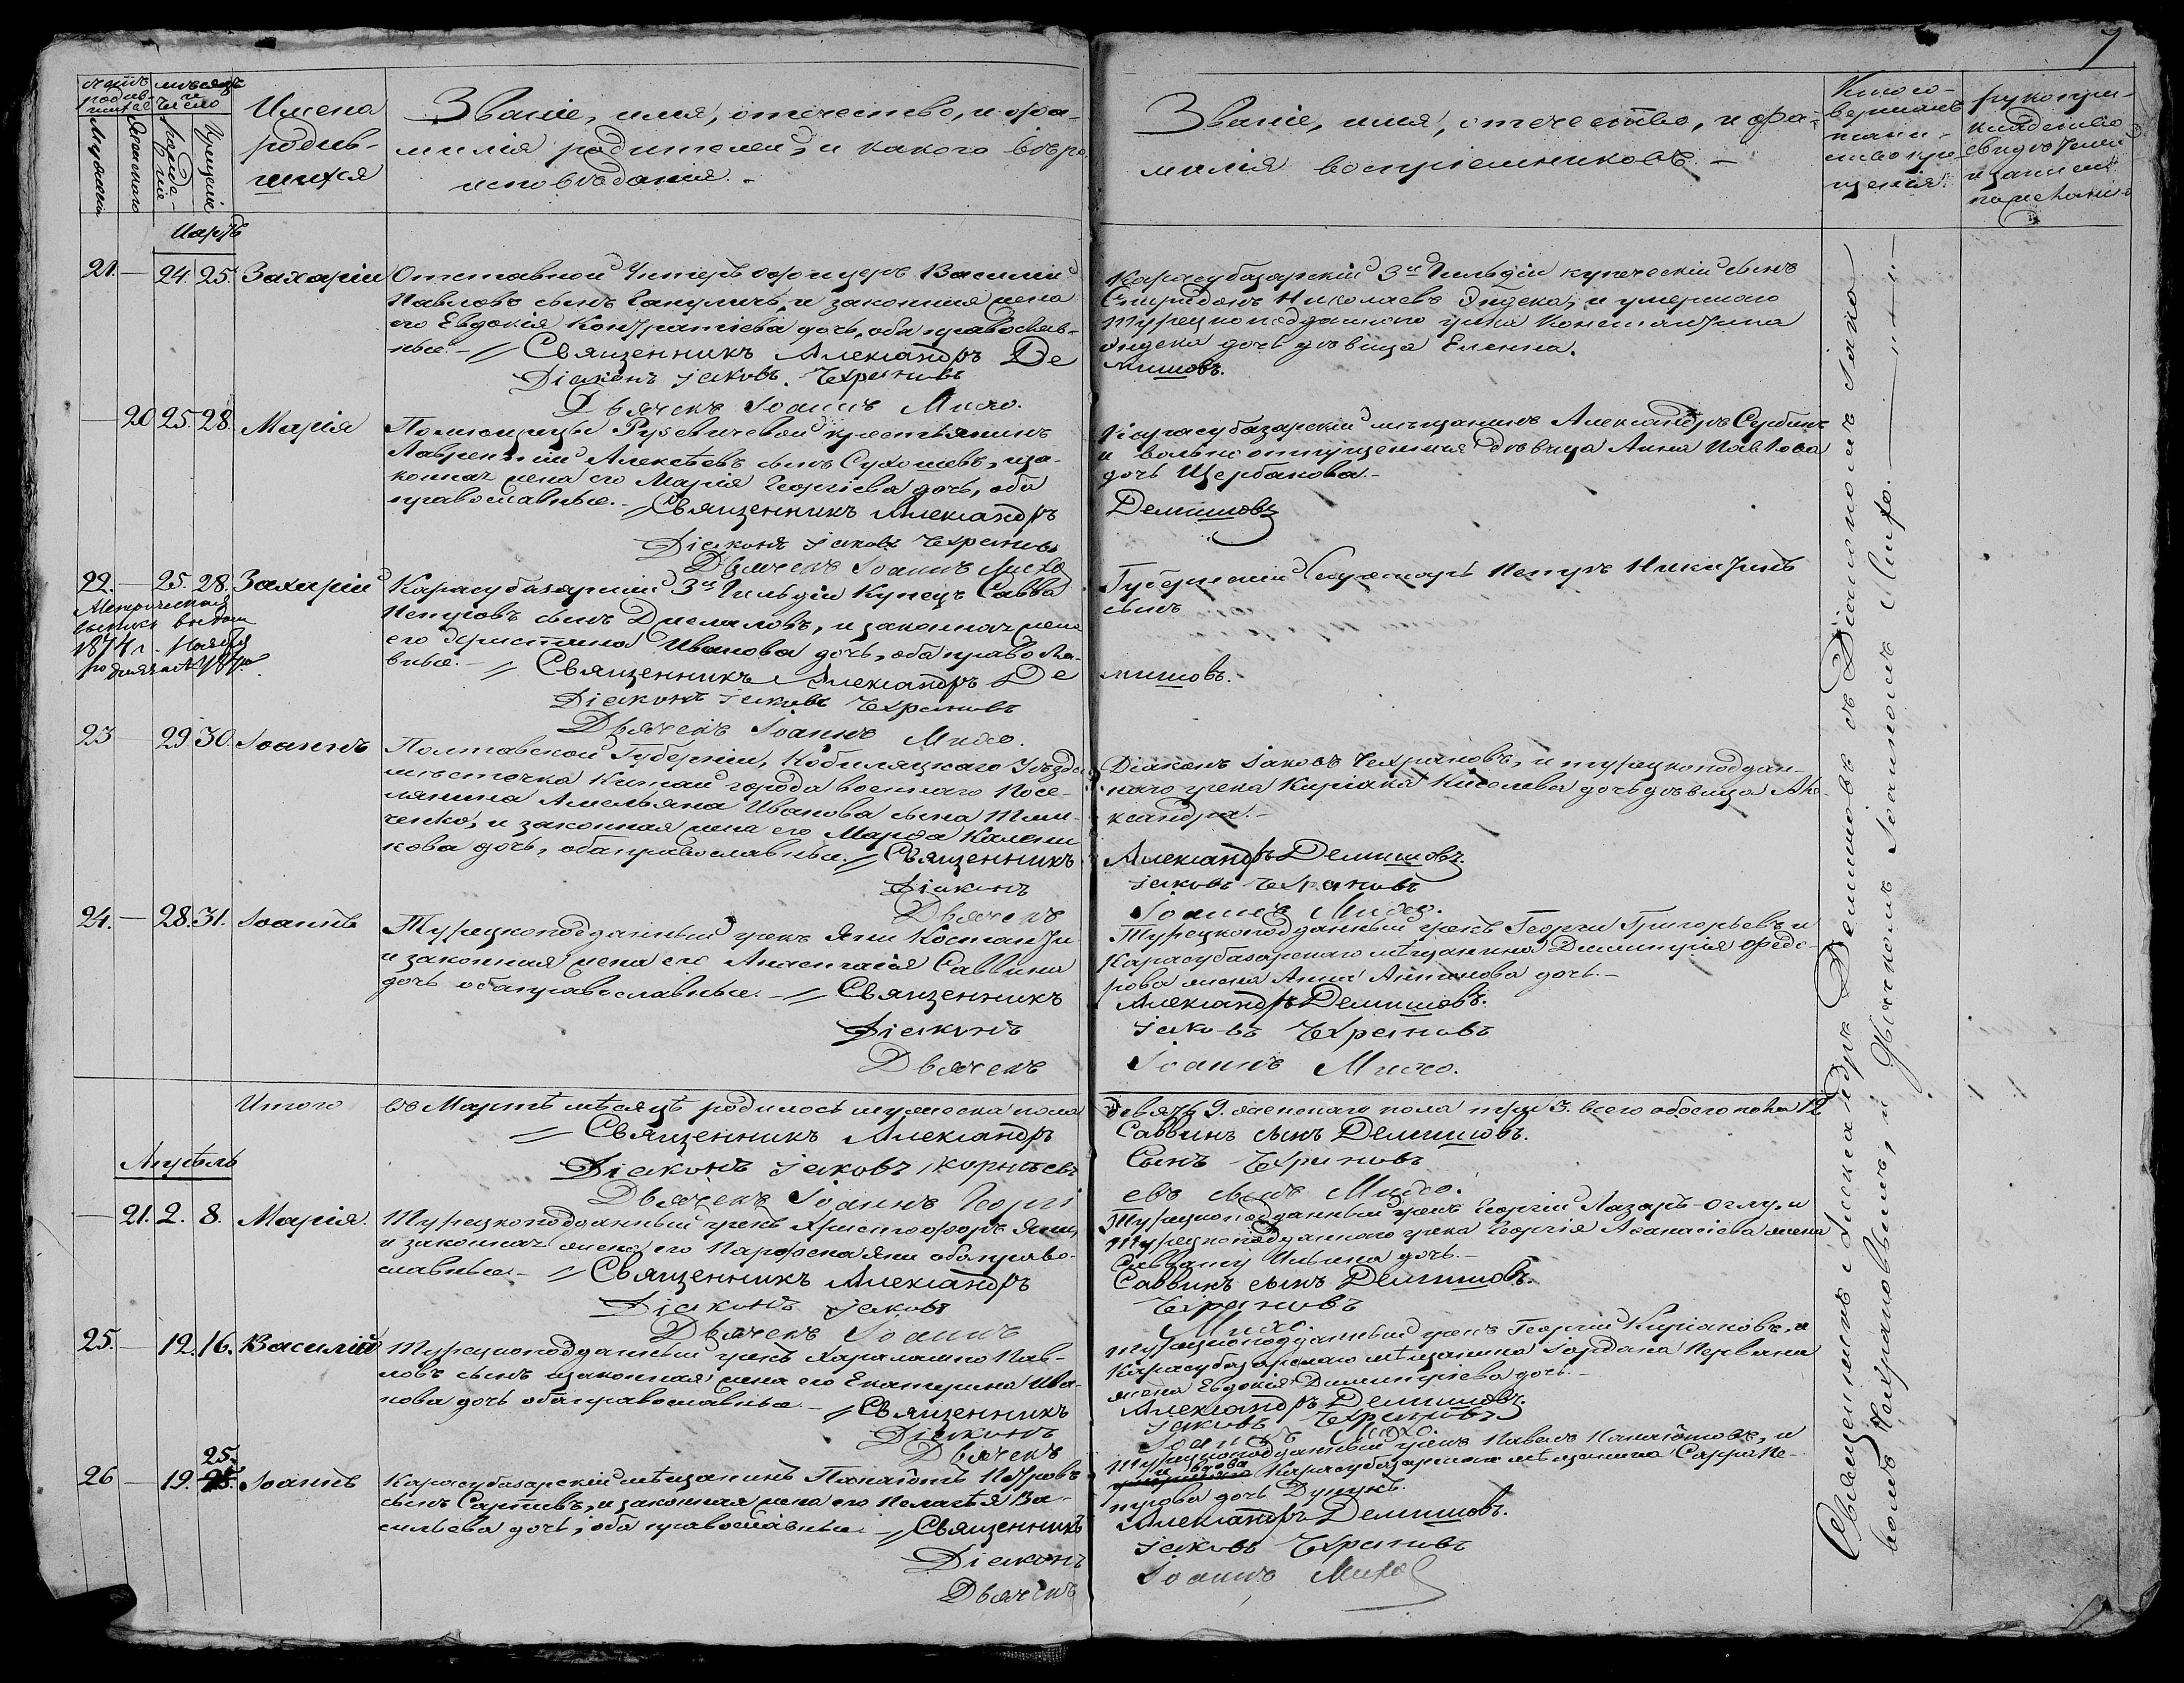 7
Счетъ родив-шихся
мѣсяцъ и число
Мужеска
Женскаго
рожде-нія
Крещенія
Имена
родив-
шихся
Званіе, имя, отечество, и фа-
милія родителей, и какого вѣро
исповѣданія. -
Званіе, имя, отечество, и фа-
милія воспріемниковъ. -
Кто со-
вершалъ
таин-
ство кре-
щенія.
рукопри-
кладство
свидѣтелей
записи
по желанію
Мартъ
21. — 24. 25. Захарій
Отставной Унтеръ офицеръ Василій
Павловъ сынъ и законная жена
его Евдокія Кондратіева дочь, оба православ-
ные. - // Священникъ Александръ Де
Діаконъ Іаковъ Чехрановъ
Дьячекъ Іоаннъ Михо.
Карасубазарскій 3й Гильдіи купеческій сынъ
Спиридонъ Николаевъ и умершаго
Турецкоподданнаго грека Константина
дочь дѣвица Еленна.
мишовъ.
— 20 25. 28. Марія
Помющицы крестьянинъ
Лаврентій Алексѣевъ сынъ Сухошевъ, и за-
конная жена его Марія Георгіева дочь, оба
православные. - // Священникъ Александръ
Діаконъ Іаковъ Чехрановъ
Дьячекъ Іоаннъ Михо
Карасубазарскій мѣщанинъ Александръ
и вольноотпущенная дѣвица Анна Павлова
дочь Щербакова. -
Демишовъ
22. — 25. 28. Захарій
Метрическая
1874 г. Ноября
Карасубазарскій 3й Гильдіи Купецъ Савва
Петровъ сынъ и законная жена
его Христина Иванова дочь, оба правосла-
вные. - // Священникъ Александръ Де
Діаконъ Іаковъ Чехрановъ
Дьячекъ Іоаннъ Михо.
Губернскій Секретарь Петръ Никитинъ
сынъ
мишовъ.
23 29. 30. Іоаннъ
Полтавской Губерніи, Кобиляцкаго Уѣзда
мѣсточка Китай города военнаго посе-
лянина Амельяна Иванова сына
ченко, и законная жена его Марфа
кова дочь, оба православные. - // Священникъ
Діаконъ
Дьячекъ
Діаконъ Іаковъ Чехрановъ, и турецкоподдан-
наго грека Киріака Киселева дочь дѣвица Але-
ксандра. -
Александръ Демишовъ.
Іаковъ Чехрановъ
Іоаннъ Михо.
24. — 28. 31. Іоаннъ
Турецкоподданный грекъ Яни
и законная жена его Анастасія Саввина
дочь оба православные. - // Священникъ
Діаконъ
Дьячекъ
Турецкоподданный грекъ Георгій Григорьевъ и
Карасубазарскаго мѣщанина Димитрія Федо-
рова жена Анна Антонова дочь. -
Александръ Демишовъ.
Іаковъ Чехрановъ
Іоаннъ Михо.
Итого въ Мартѣ мѣсяцѣ родилось мужеска пола
девять 9. женскаго пола три 3. всего обоего пола 12
// Священникъ Александръ
Саввинъ сынъ Демишовъ.
Діаконъ Іаковъ Корнѣевъ
Сынъ Чехрановъ
Дьячекъ Іоаннъ Георгі
евъ сынъ Михо.
Апрѣль
— 21. 2. 8. Марія.
Турецкоподданный грекъ Христофоръ Яни,
и законная жена его Парфена Яни оба право-
славные. - // Священникъ Александръ
Діаконъ Іаковъ
Дьячекъ Іоаннъ
Турецкоподданный грекъ Георгій Лазарь-Оглу, и
Турецкоподданнаго грека Георгія Афанасіева жена
Ильина дочь. -
Саввинъ сынъ Демишовъ.
Чехрановъ
Михо.
25. — 12. 16. Василій
Турецкоподданный грекъ Харалампо Пав-
ловъ сынъ и законная жена его Екатерина Ива-
нова дочь оба православные. - // Священникъ
Діаконъ
Дьячекъ
Турецкоподданный грекъ Георгій Киріаковъ, и
Карасубазарскаго мѣщанина Іордана
жена Евдокія Димитріева дочь. -
Александръ Демишовъ.
Іаковъ Чехрановъ
Іоаннъ Михо.
25.
26 — 19. Іоаннъ
Карасубазарскій мѣщанинъ Панаіотъ Петровъ
сынъ и законная жена его Пелагѣя Ва-
сильева дочь, оба православные. - // Священникъ
Діаконъ
Дьячекъ
Турецкоподданный грекъ Павелъ Панаіотовъ, и
вдова Карасубазарская мѣщанина Пе-
трова дочь
Александръ Демишовъ.
Іаковъ Чехрановъ
Іоаннъ Михо
Священникъ Александръ Демишовъ съ Діакономъ Іако-
вомъ Чехрановымъ, и Дьячкомъ Іоанномъ Михо.